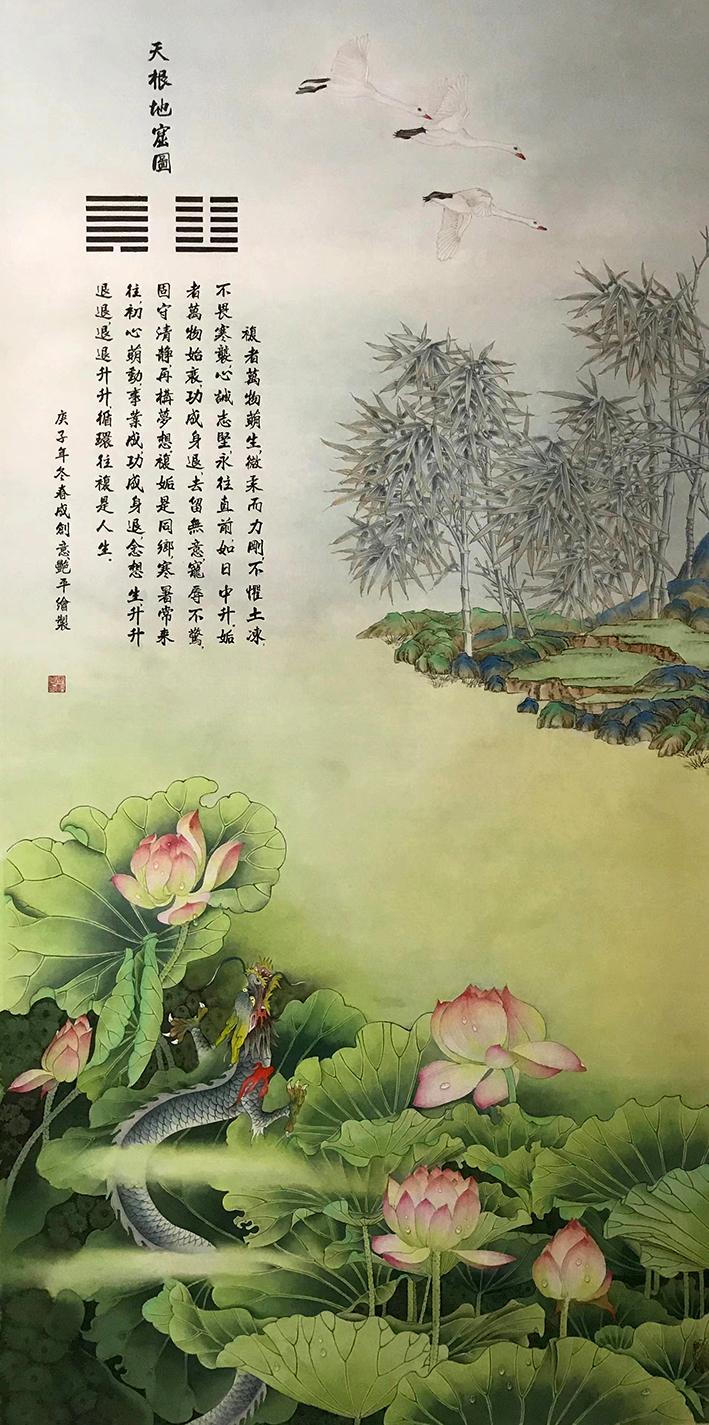 天根地窟圖
複者萬物萌生,微柔而力剛,不懼土凍,
不畏寒襲,心誠志堅,永往直前,如日中升,姤
者萬物始衰,功成身退,去留無意,寵辱不驚,
固守清靜,再構夢想,複姤是同鄉,寒暑常來
往,初心萌動,事業成功,成身退,念想生,升升
退退,退退升升,循環往複是人生.
庚子年冬春成創意艷平繪製